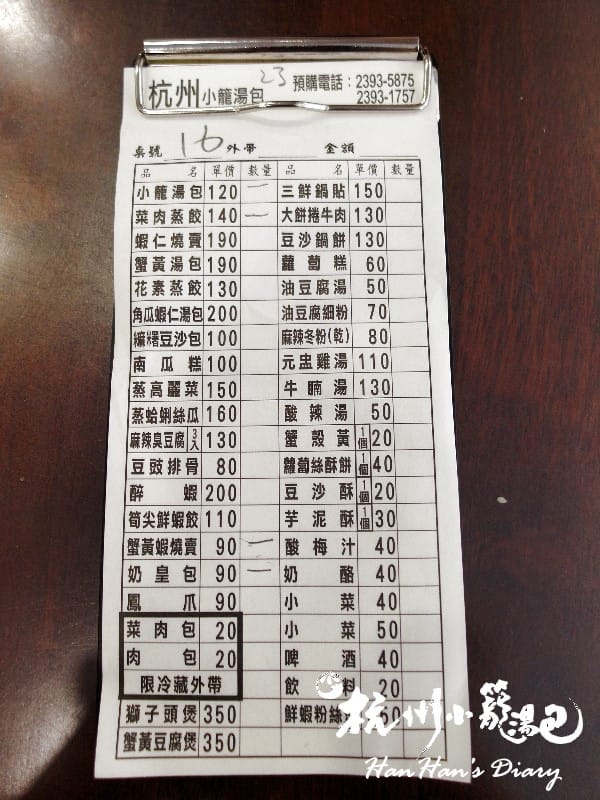 杭州小籠湯包 23 預購電話：2393-5875
2393-1757
桌號 16 外帶 金額
品名 單價 數量 品名 單價 數量
小籠湯包 120 一 三鮮鍋貼 150
菜肉蒸餃 140 一 大餅捲牛肉 130
蝦仁燒賣 190 豆沙鍋餅 130
蟹黃湯包 190 蘿蔔糕 60
花素蒸餃 130 油豆腐湯 50
角瓜蝦仁湯包 200 油豆腐細粉 70
麻糬豆沙包 100 麻辣冬粉(乾) 80
南瓜糕 100 元盅雞湯 110
蒸高麗菜 150 牛腩湯 130
蒸蛤蜊絲瓜 160 酸辣湯 50
麻辣臭豆腐 3入 130 蟹殼黃 1個 20
豆豉排骨 80 蘿蔔絲酥餅 1個 40
醉蝦 200 豆沙酥 1個 20
筍尖鮮蝦餃 110 芋泥酥 1個 30
蟹黃蝦燒賣 90 一 酸梅汁 40
奶皇包 90 一 奶酪 40
鳳爪 90 小菜 40
菜肉包 20 小菜 50
肉包 20 啤酒 40
限冷藏外帶 飲料 20
獅子頭煲 350 鮮蝦粉絲
蟹黃豆腐煲 350
杭州小籠湯包
Han Han's Diary